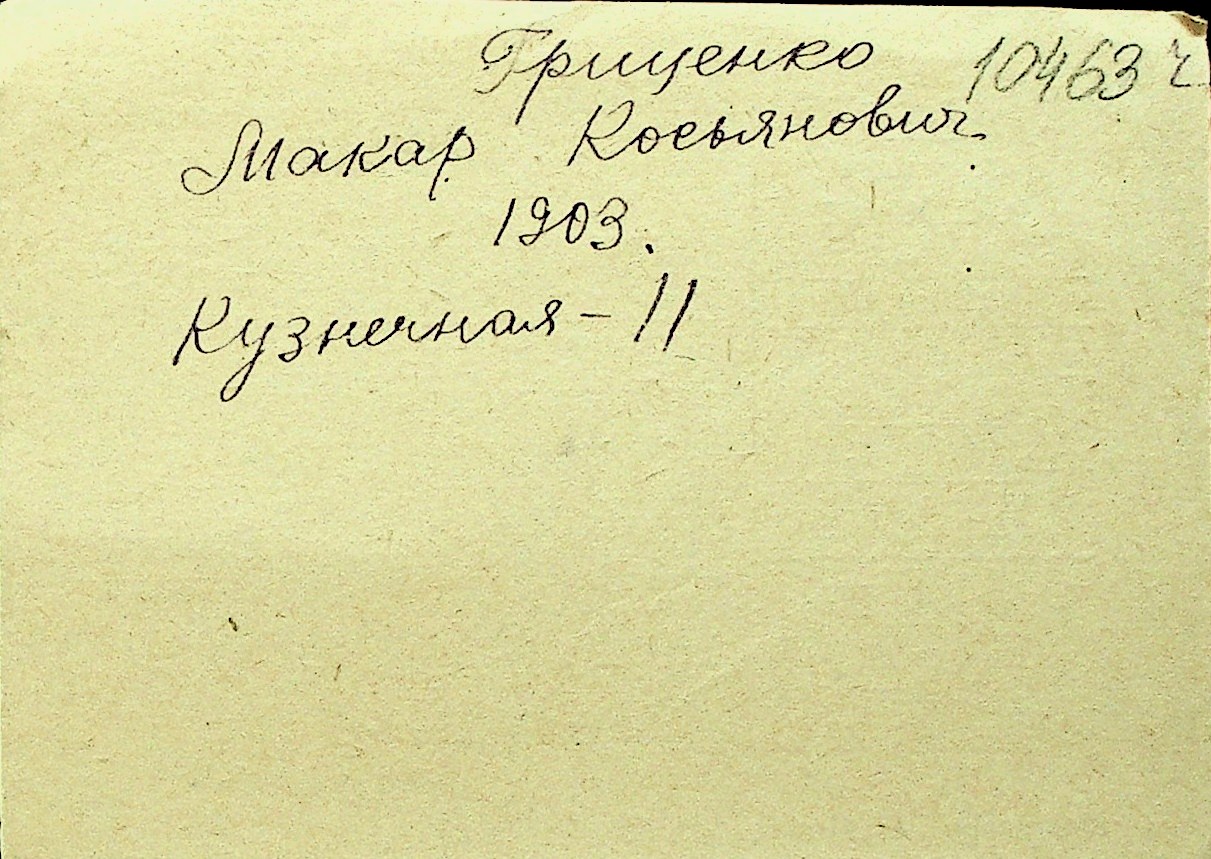 Гриценко 10463 ч
Макар Косьянович
1903.
Кузнечная - 11